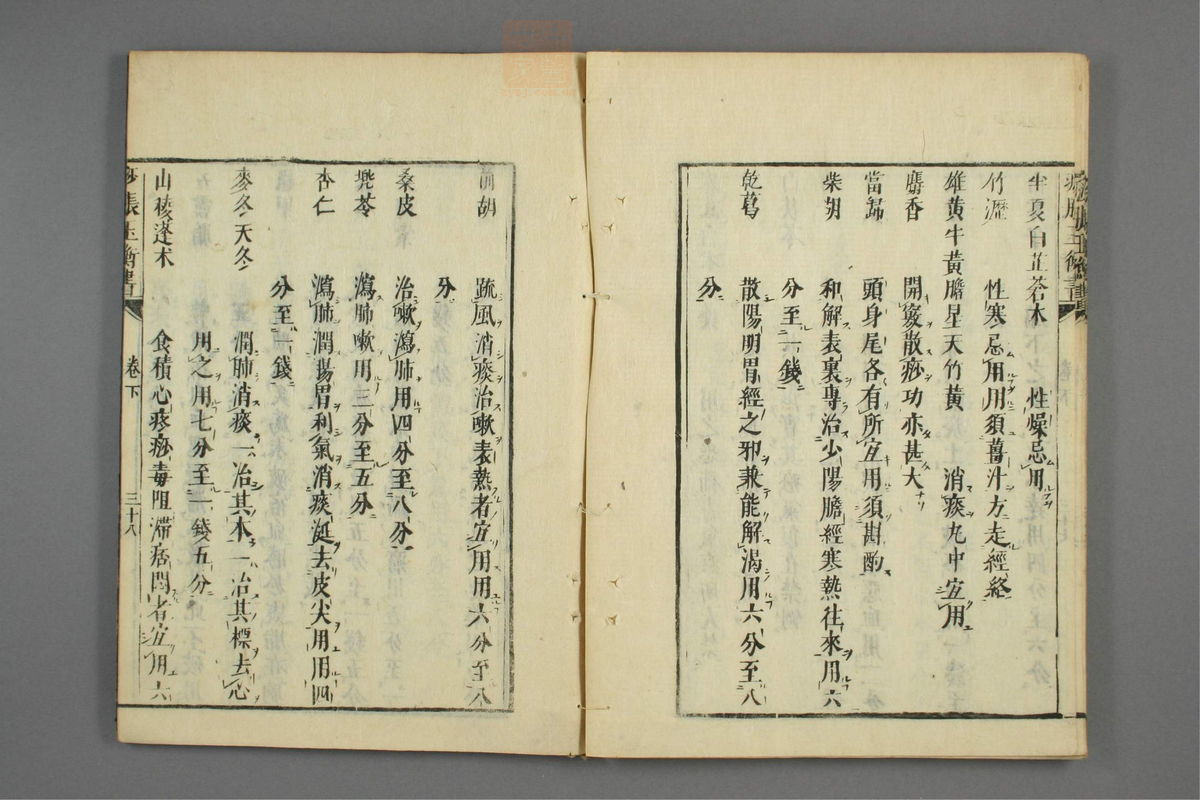 痧脹玉衡書
半夏白芷蒼朮　性燥忌用
竹瀝　性寒忌用用須薑汁方走經絡
雄黃牛黃膽星天竹黃　消痰丸中宜用
麝香　開竅散痧功亦甚大
當歸　頭身尾各有所宜用須斟酌
柴胡　和解表裏專治少陽膽經寒熱往來用六
分至一錢
乾葛　散陽明胃經之邪兼能解渴用六分至八
分
前胡　疏風消痰治嗽表熱者宜用用六分至八
分
桑皮　治嗽瀉肺用四分至八分
兠苓　瀉肺嗽用三分至五分
杏仁　瀉肺潤腸胃利氣消痰涎去皮尖用用四
分至一錢
麥冬天冬　潤肺消痰一治其本一治其標去心
用之用七分至一錢五分
山稜蓬朮　食積心疼痧毒阻滯痞悶者宜用六
痧脹玉衡書　卷下　三十八